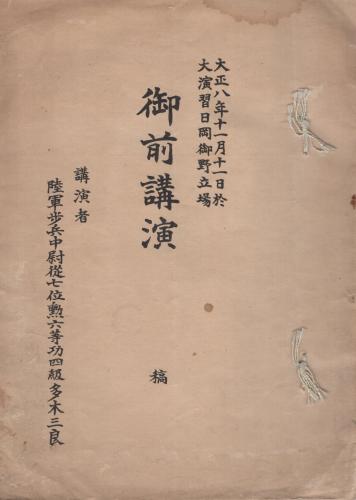 大正八年十一月十一日於
大演習日岡御野立場
御前講演
稿
講演者
陸軍步兵中尉從七位勲六等功四級多木三良